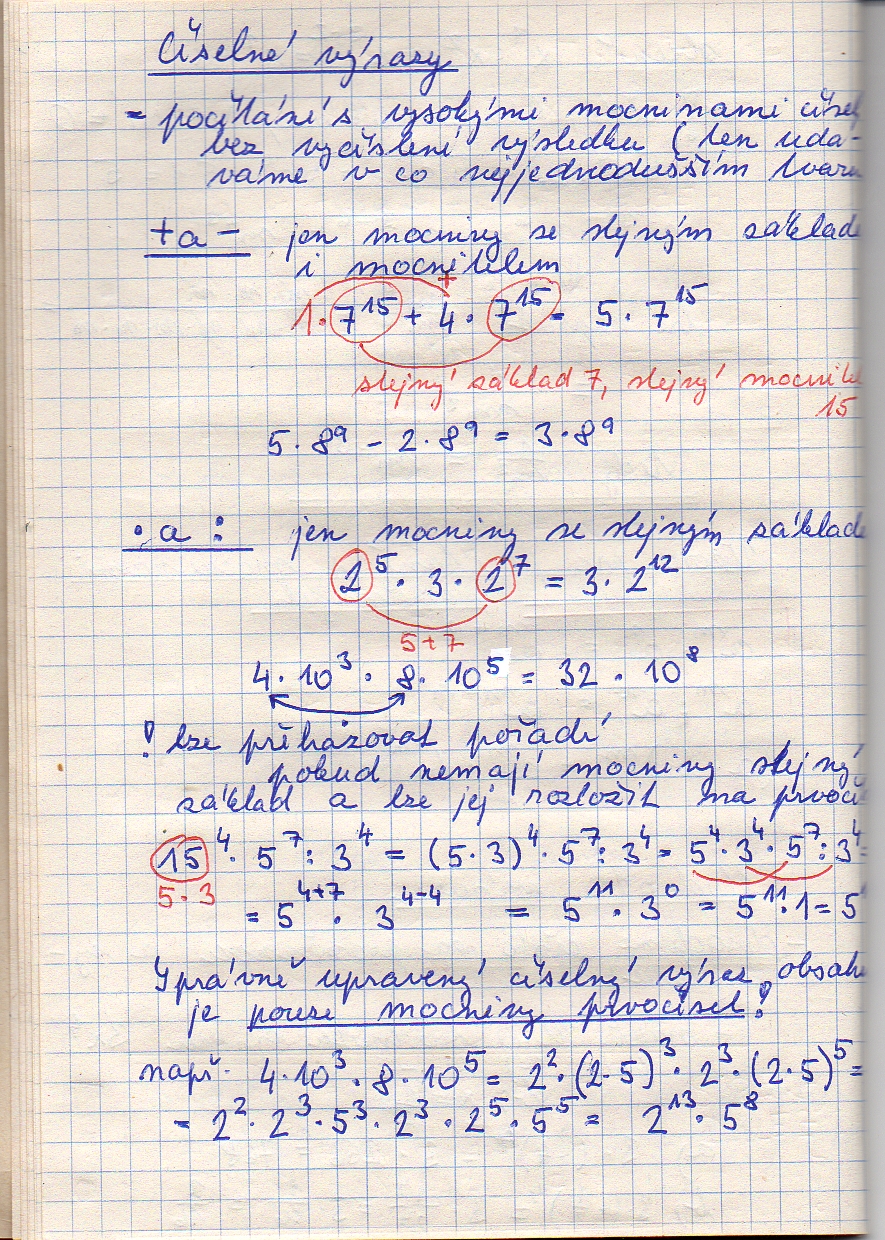 Číselné výrazy
= počítání s vysokými mocninami čísel
bez vyčíslení výsledku (len udá-
váme v co nejjednodušším tvaru
+ a - jen mocniny se stejným základe
i mocnitelem
+
1·7¹⁵ + 4·7¹⁵ = 5·7¹⁵
stejný základ 7, stejný mocnitel
15
5·8⁹ - 2·8⁹ = 3·8⁹
· a : jen mocniny se stejným základe
2⁵ · 3 · 2⁷ = 3·2¹²
5+7
4·10³ · 8·10⁵ = 32·10⁸
! lze přehazovat pořadí
pokud nemají mocniny stejný
základ a lze jej rozložit na prvočí
15⁴ · 5⁷ : 3⁴ = (5·3)⁴ · 5⁷ : 3⁴ = 5⁴·3⁴·5⁷:3⁴ =
5·3
= 5⁴⁺⁷ · 3⁴⁻⁴ = 5¹¹ · 3⁰ = 5¹¹·1 = 5¹
Správně upravený číselný výraz obsahu
je pouze mocniny prvočísel!
např. 4·10³ · 8·10⁵ = 2²·(2·5)³ · 2³·(2·5)⁵ =
= 2²·2³·5³·2³·2⁵·5⁵ = 2¹³·5⁸